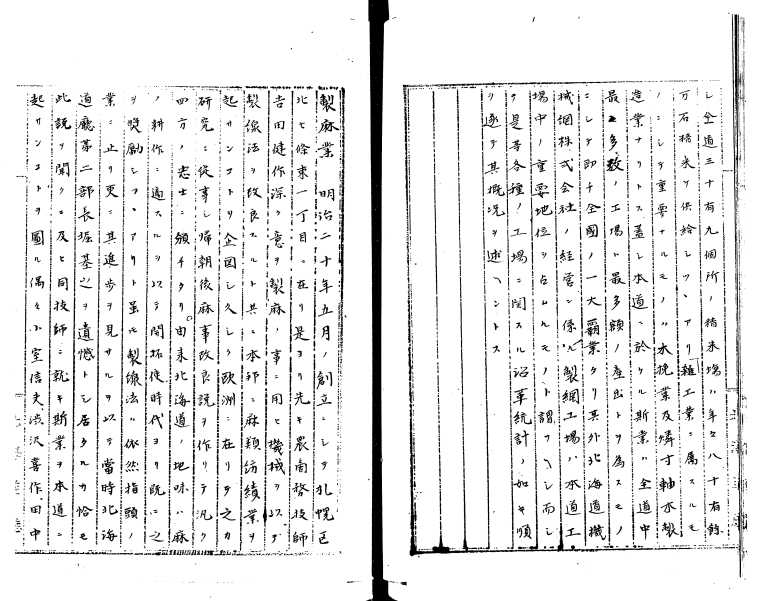 シ全道三十有九個所ノ精米場ハ年々八十有餘
万石精米ヲ供給シツヽアリ雜工業ニ属スルモ
ノニシテ重要ナルモノハ木挽業及燐寸軸木製
造業ナリトス蓋シ本道ニ於ケル斯業ハ全道中
最モ多數ノ工場ト最多額ノ産出トヲ為スモノ
ニシテ即チ全國ノ一大覇業タリ其外北海道機
械網株式会社ノ経営ニ係ル製網工場ハ本道工
場中ノ重要地位ヲ占ムルモノト謂フヘシ而シ
テ是等各種ノ工場ニ関スル沿革統計ノ如キ順
ヲ逐テ其概況ヲ述ヘントス
製麻業 明治二十年五月ノ創立ニシテ札幌区
北七條東一丁目ニ在リ是ヨリ先キ農商務技師
吉田健作深ク意ヲ製麻ノ事ニ用ヒ機械ヲ以テ
製線法ヲ改良スルト共ニ本邦ニ麻類紡績業ヲ
起サンコトヲ企図シ久シク欧洲ニ在リテ之カ
研究ニ從事シ帰朝後麻事改良説ヲ作リテ汎ク
四方ノ志士ニ頒チタリ由来北海道ノ地味ハ麻
ノ耕作ニ適スルヲ以テ開拓使時代ヨリ既ニ之
ヲ奨励シツヽアリト雖ル製線法ハ依然指頭ノ
業ニ止リ更ニ其進歩ヲ見サルヲ以テ當時北海
道廳第二部長堀基之ヲ遺憾トシ居タルカ恰モ
此説ヲ聞クニ及ヒ同技師ニ就キ斯業ヲ本道ニ
起サンコトヲ圖ル偶々小室信夫渋沢喜作田中